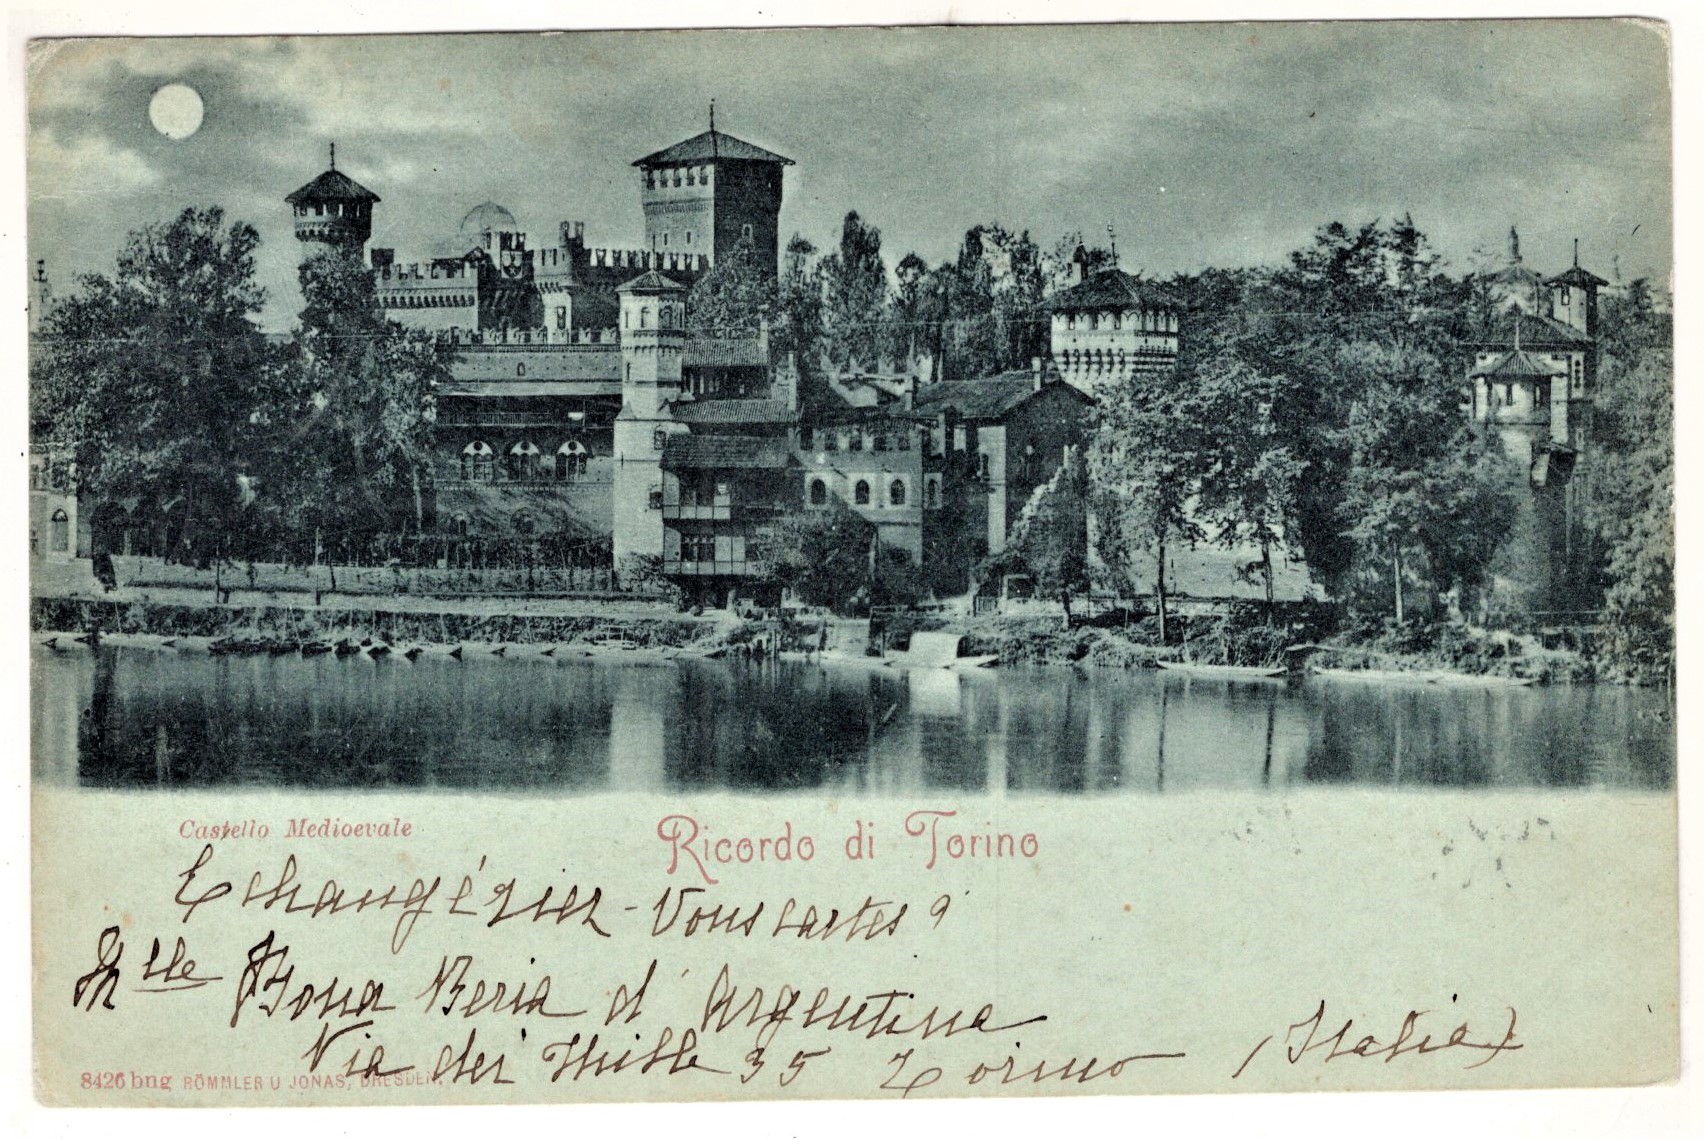 Castello Medioevale
Ricordo di Torino
Echangériez-Vous cartes ?
Mlle Bona Beria d'Argentina
Via dei Mille 35 Torino (Italia)
8426 bng RÖMMLER U JONAS, DRESDEN.